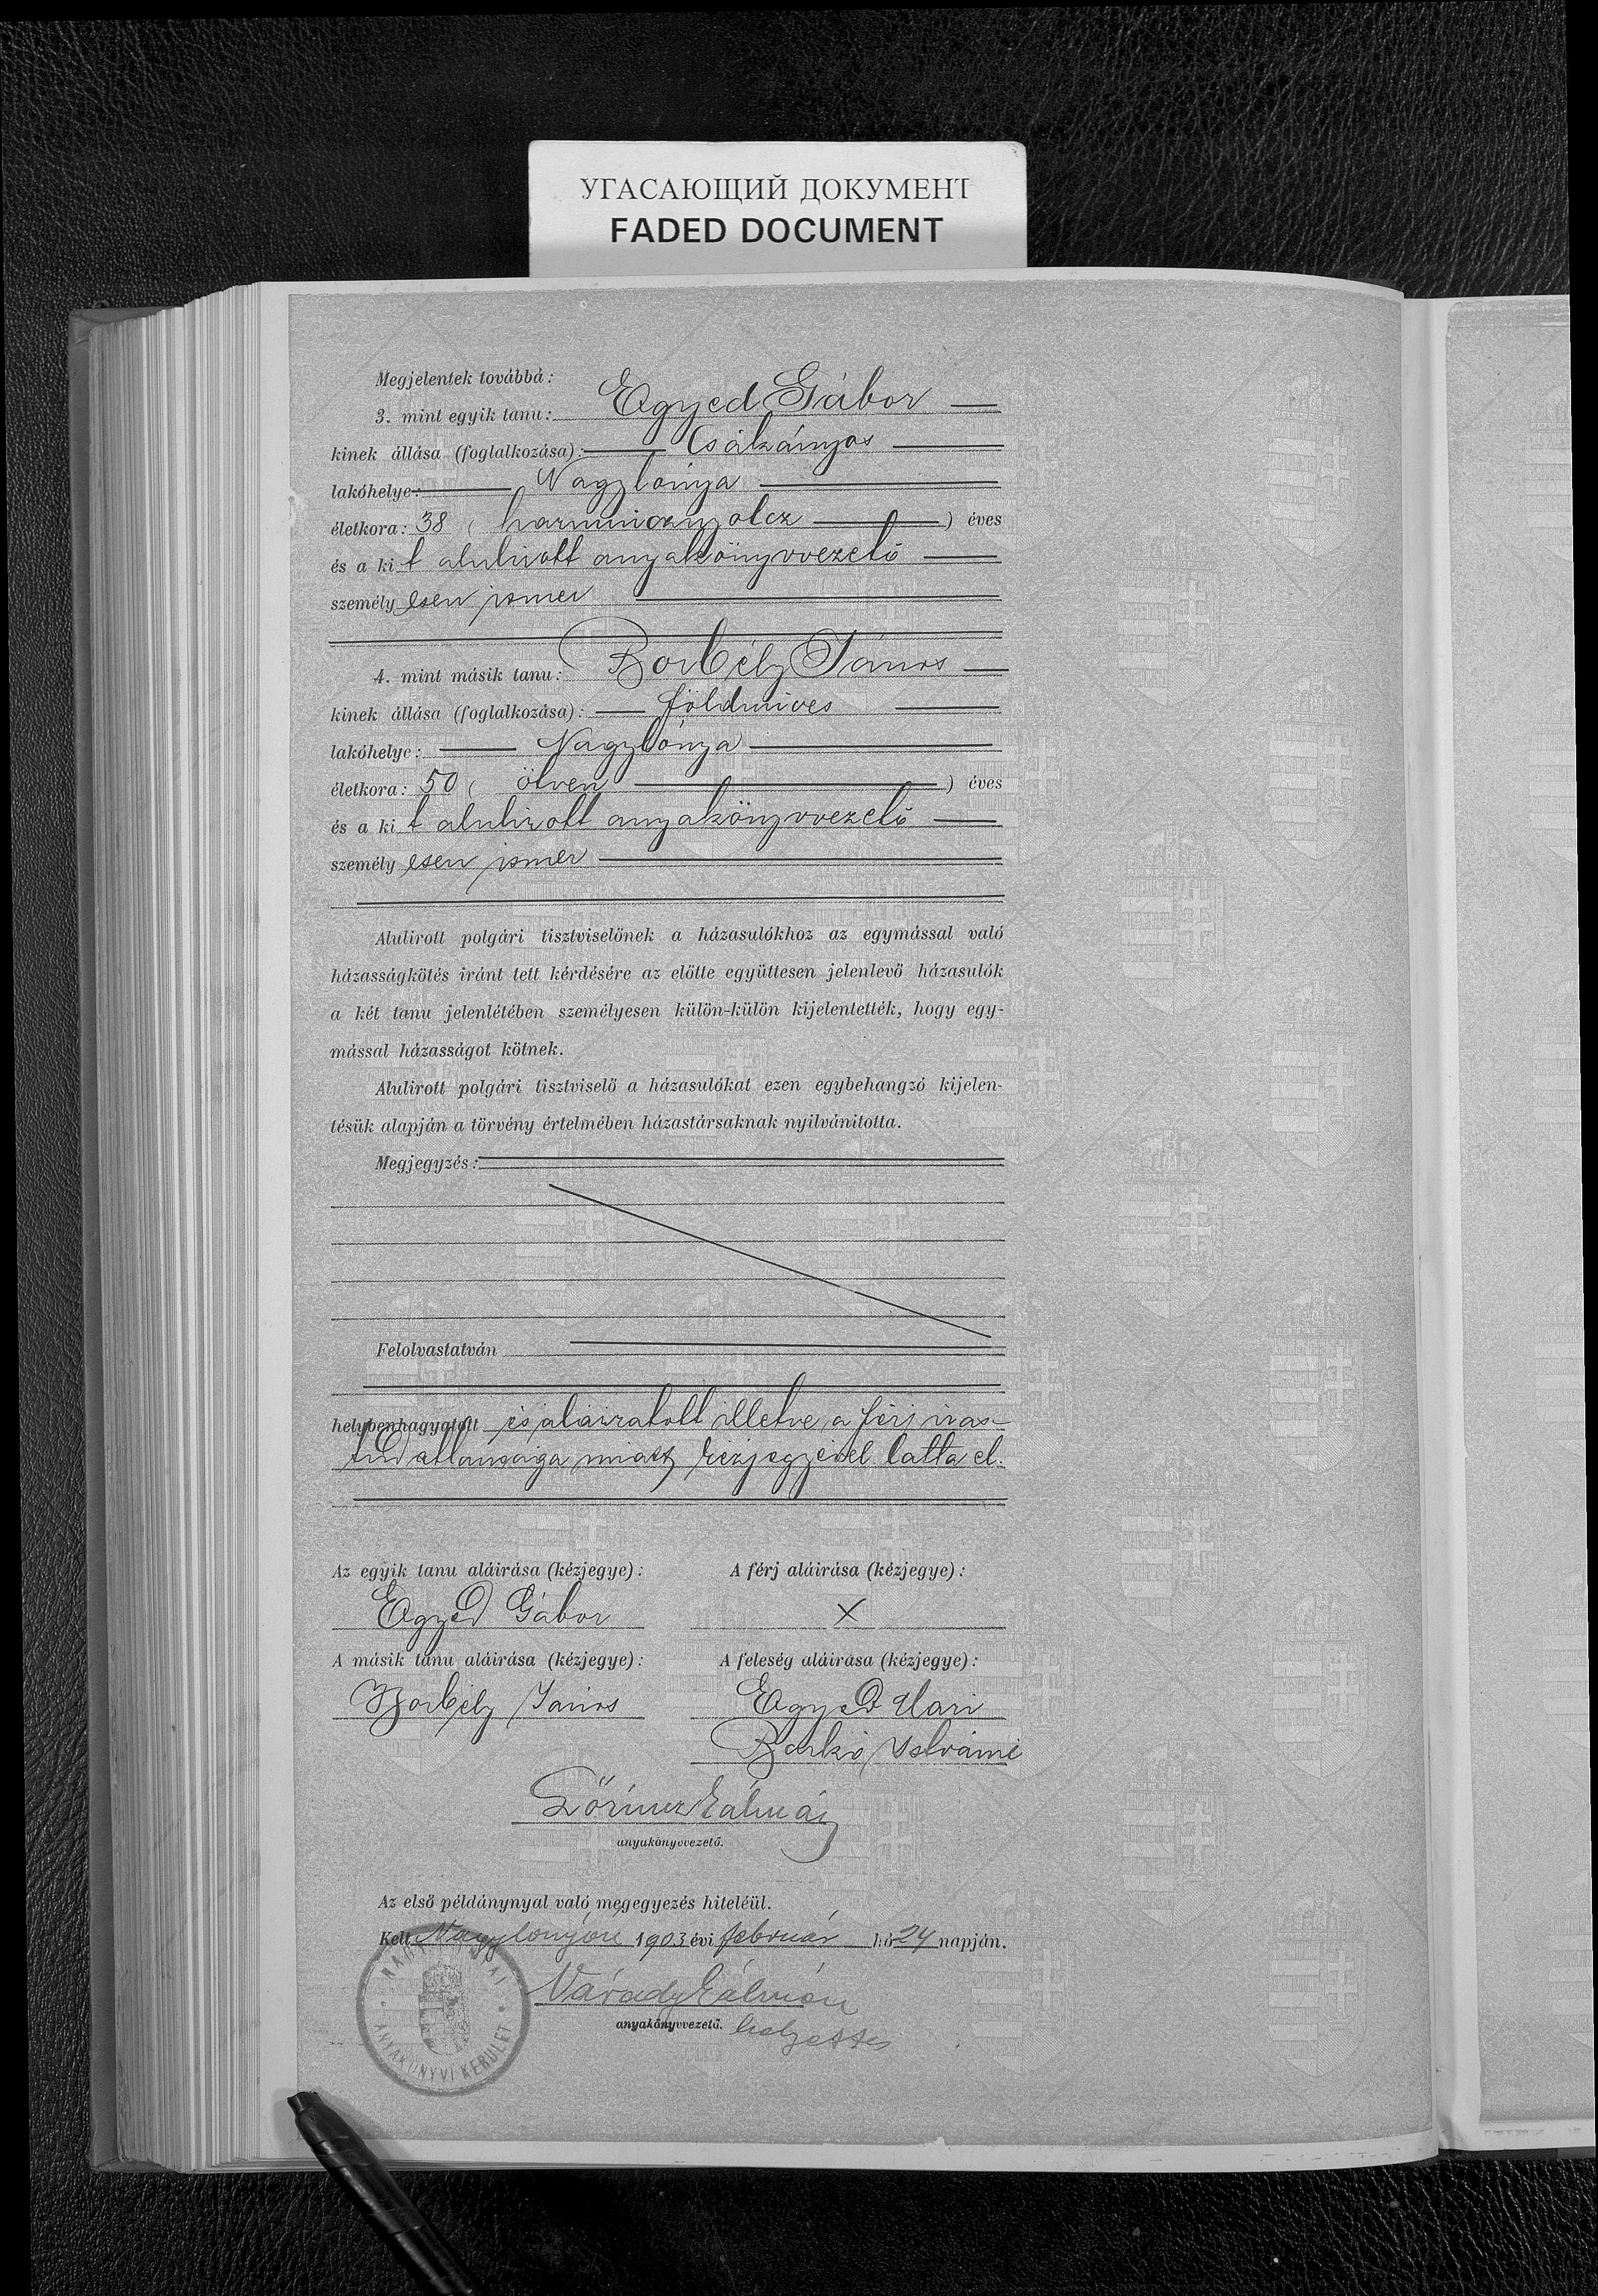 УГАСАЮЩИЙ ДОКУМЕНТ
FADED DOCUMENT
Megjelentek továbbá:
3. mint egyik tanu: Egyed Gábor
kinek állása (foglalkozása): Csákányos
lakóhelye: Nagylónya
életkora: 38 ( harmincznyolcz ) éves
és a ki t alulirott anyakönyvvezető
személy esen ismer
4. mint másik tanu: Borbély János
kinek állása (foglalkozása): földmíves
lakóhelye: Nagylónya
életkora: 50 ( ötven ) éves
és a ki t alulirott anyakönyvvezető
személy esen ismer
Alulirott polgári tisztviselőnek a házasulókhoz az egymással való
házasságkötés iránt tett kérdésére az előtte együttesen jelenlevő házasulók
a két tanu jelenlétében személyesen külön-külön kijelentették, hogy egy-
mással házasságot kötnek.
Alulirott polgári tisztviselő a házasulókat ezen egybehangzó kijelen-
tésük alapján a törvény értelmében házastársaknak nyilvánitotta.
Megjegyzés:
Felolvastatván
helybenhagyatott és aláiratott illetve a férj iras-
tudatlansága miatt kézjegyével látta el.
Az egyik tanu aláirása (kézjegye):
A férj aláirása (kézjegye):
Egyed Gábor
X
A másik tanu aláirása (kézjegye):
A feleség aláirása (kézjegye):
Borbély János
Egyed Mari
Barkó Istvánné
Kálmán
anyakönyvvezető.
Az első példánynyal való megegyezés hiteléül.
Kelt Nagylónyán 1903 évi február hó 24 napján.
Várady Kálmán
anyakönyvvezető. helyettes
ANYAKÖNYVI KERÜLET